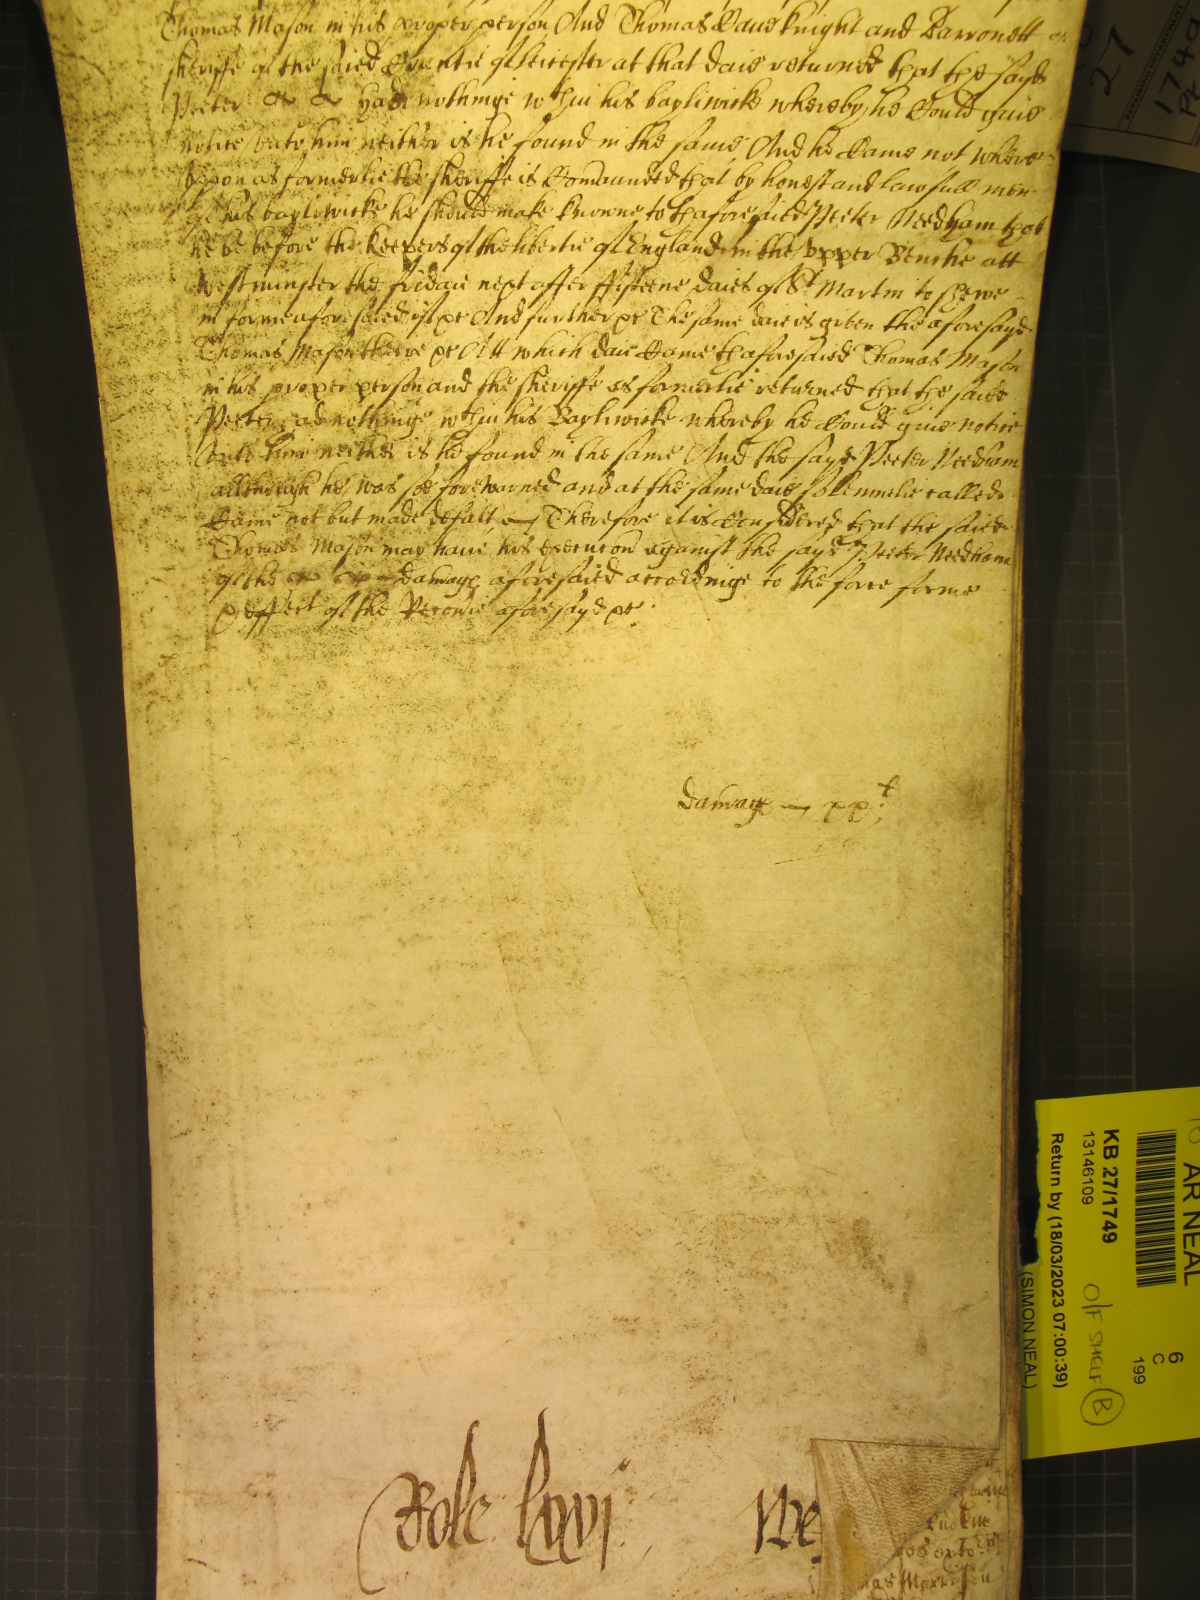 Thomas Mason in his proper person And Thomas Caue knight and Barronett
sheriffe of the saied Countie of Leicester at that daie returned that the sayd
Peeter had nothinge wthin his bayliwicke whereby he Could giue
notice vnto him neither is he found in the same And he Came not where
vppon as formerlie the sheriffe is Comaunded that by honest and lawfull men
of his bayliwicke he should make knowne to thaforesaied Peeter Needham that
he be before the keepers of the libertie of England in the vpper Benche att
Westminster the fridaie next after fifteene daies of St Martin to shewe
in forme aforesaied if &c And further &c The same daie is given the aforesayd
Thomas Mason there &c Att which daie Came thaforesaied Thomas Mason
in his proper person and the sheriffe as formerlie returned that the saied
Peeter had nothinge wthin his Bayliwicke whereby he Could giue notice
vnto him neither is he found in the same And the sayd Peeter Needham
although he was soe forewarned and at the same daie solemnelie called
Came not but made defalt Therefore it is Considered that the saied
Thomas Mason may haue his execucon against the sayd Peeter Needham
of the damages aforesaied accordinge to the force forme
& effect of the Recouie aforesayd &c
damages xx
Rolle lxvj
We
KB 27/1749
13146109
Return by (18/03/2023 07:00:39)
(SIMON NEAL)
AR NEAL
O/F SHELF B
6
C
199
27